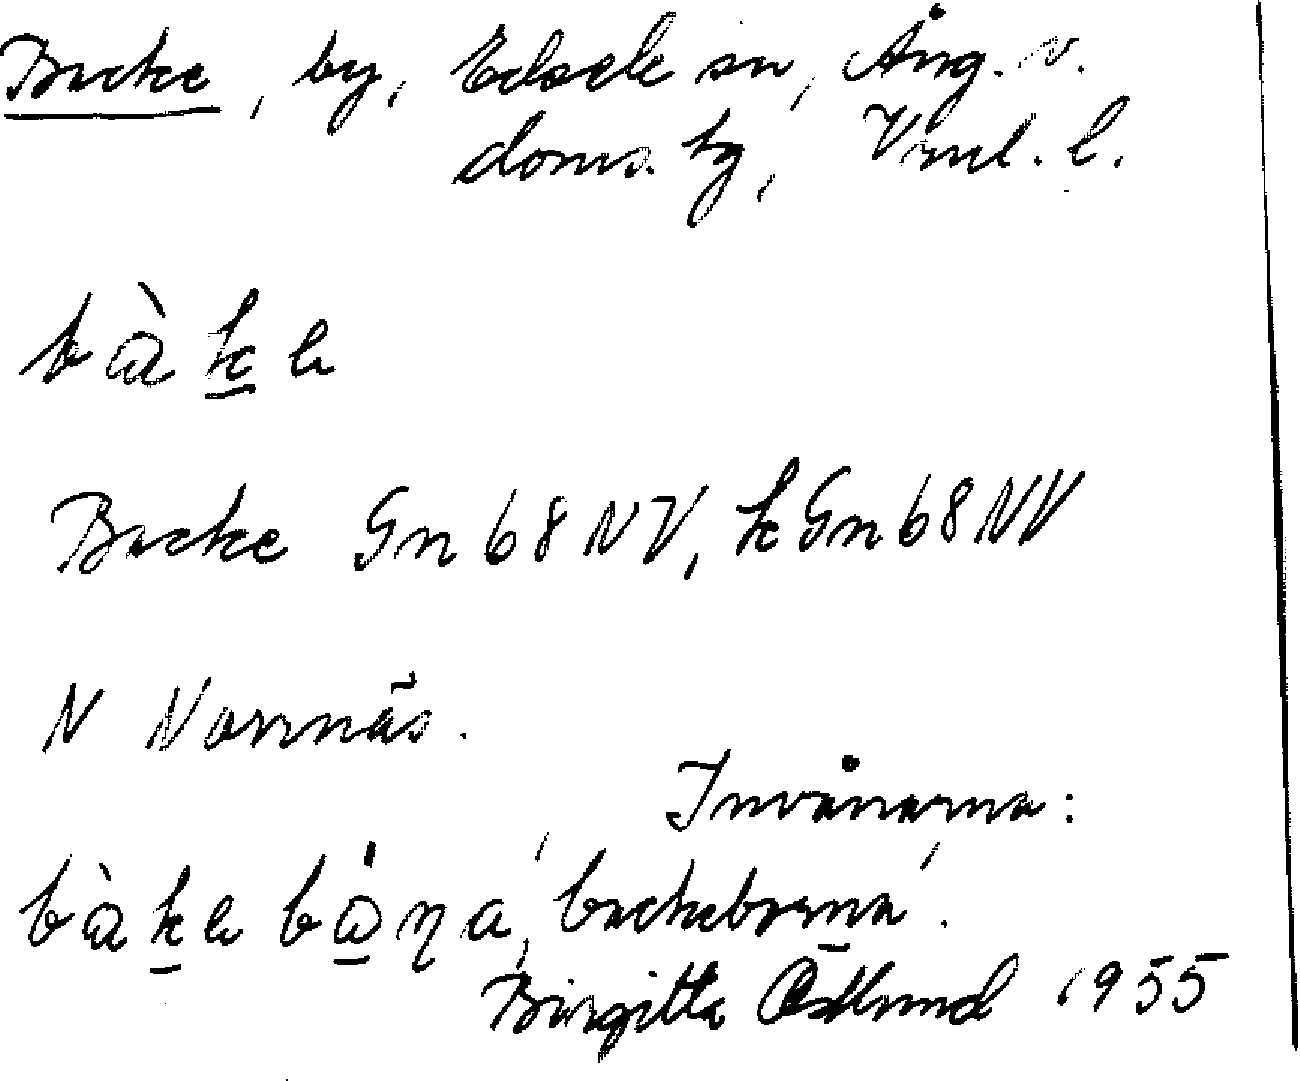 Backe, by, Edsele sn, Ång. v.
doms. tg, Vnl. l.
bàk̲e
Backe Gn 68 NV, k Gn 68 NV
N Norrnäs.
Invånarna:
bàk̲e bå̲ɳa, 'backeborna'.
Birgitta Östlund 1955